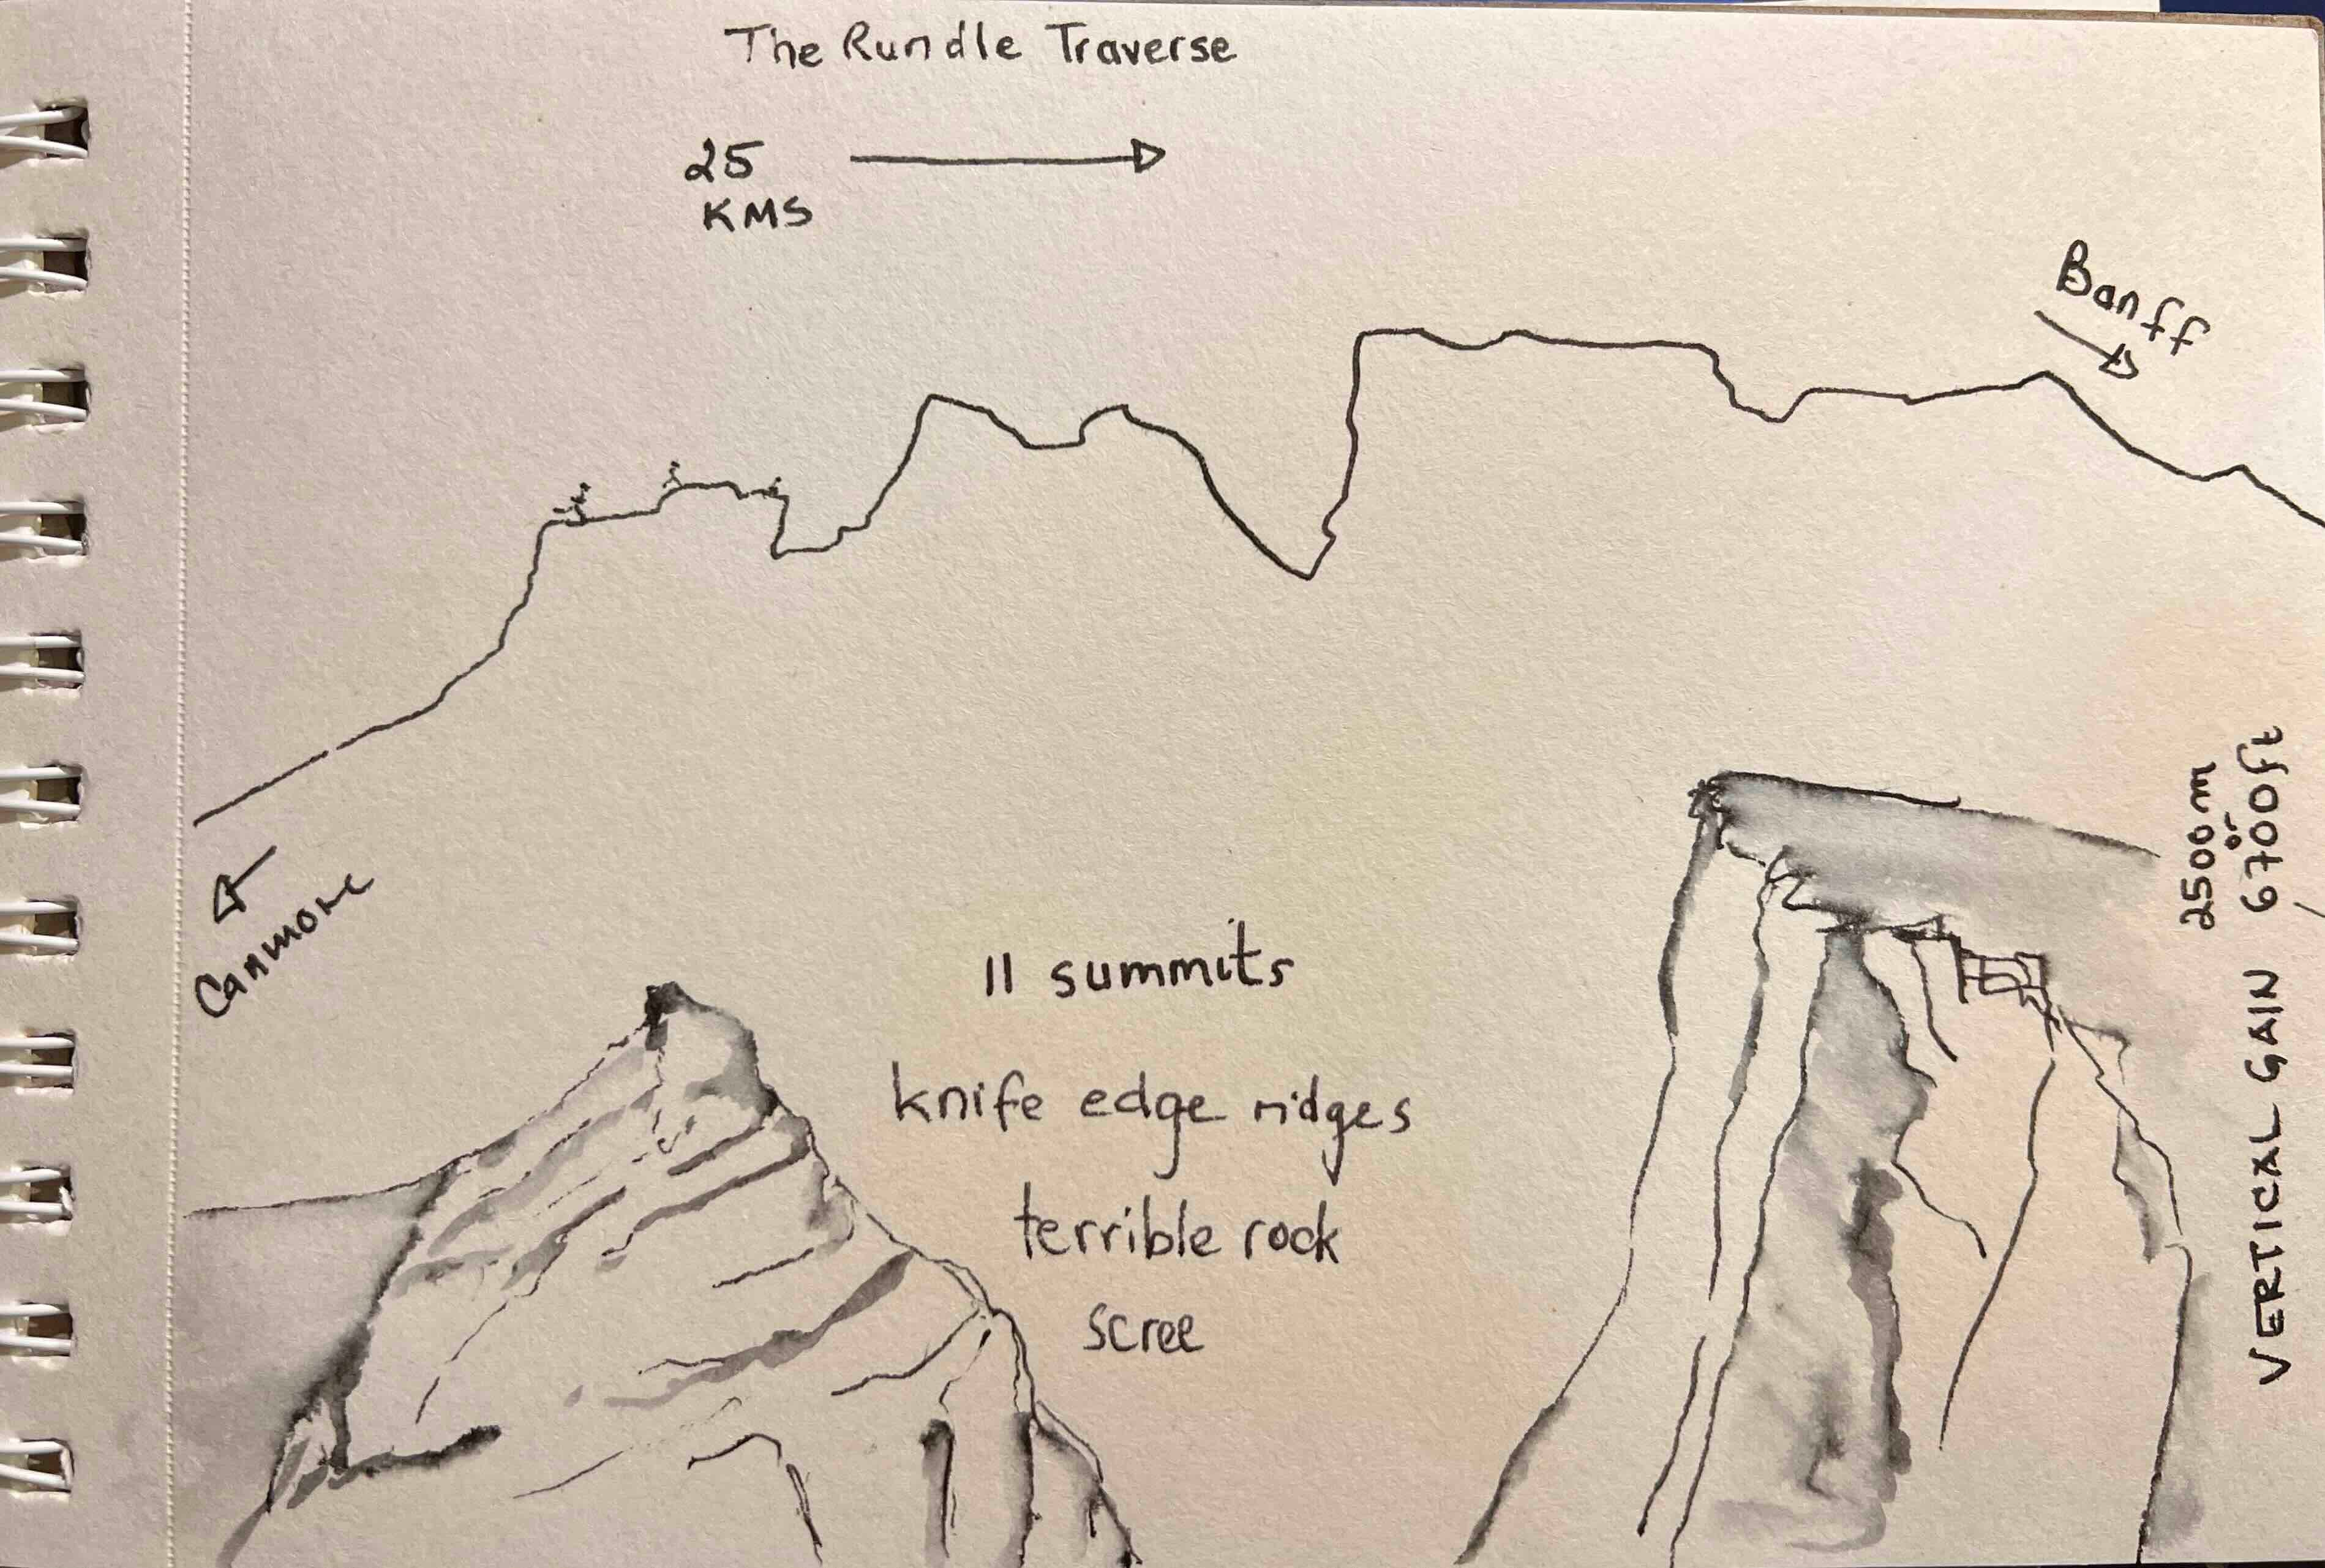 The Rundle Traverse
25
KMS
Banff
Canmore
11 summits
knife edge ridges
terrible rock
scree
2500m
or
VERTICAL GAIN 6700ft